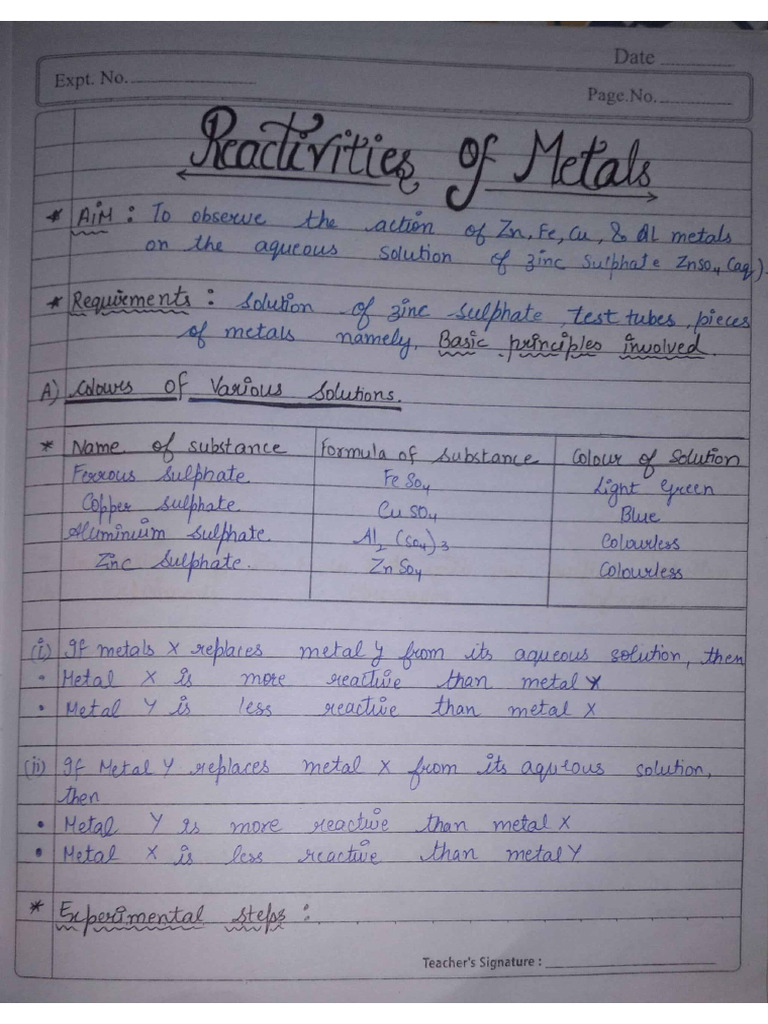 Date
Expt. No.
Page.No.
Reactivities of Metals
* AiM : To observe the action of Zn, Fe, Cu, & Al metals
on the aqueous solution of zinc sulphate ZnSO4 (aq).
* Requirements : Solution of zinc sulphate, test tubes, pieces
of metals namely, Basic principles involved.
A) Colours of Various Solutions.
* Name of substance Formula of substance Colour of Solution
Ferrous sulphate. FeSO4 Light Green
Copper sulphate. CuSO4 Blue
Aluminium sulphate. Al2(SO4)3 Colourless
Zinc sulphate. ZnSO4 Colourless
(i) If metals X replaces metal Y from its aqueous solution, then
• Metal X is more reactive than metal Y
• Metal Y is less reactive than metal X
(ii) If Metal Y replaces metal X from its aqueous solution,
then
• Metal Y is more reactive than metal X
• Metal X is less reactive than metal Y
* Experimental steps :
Teacher's Signature :